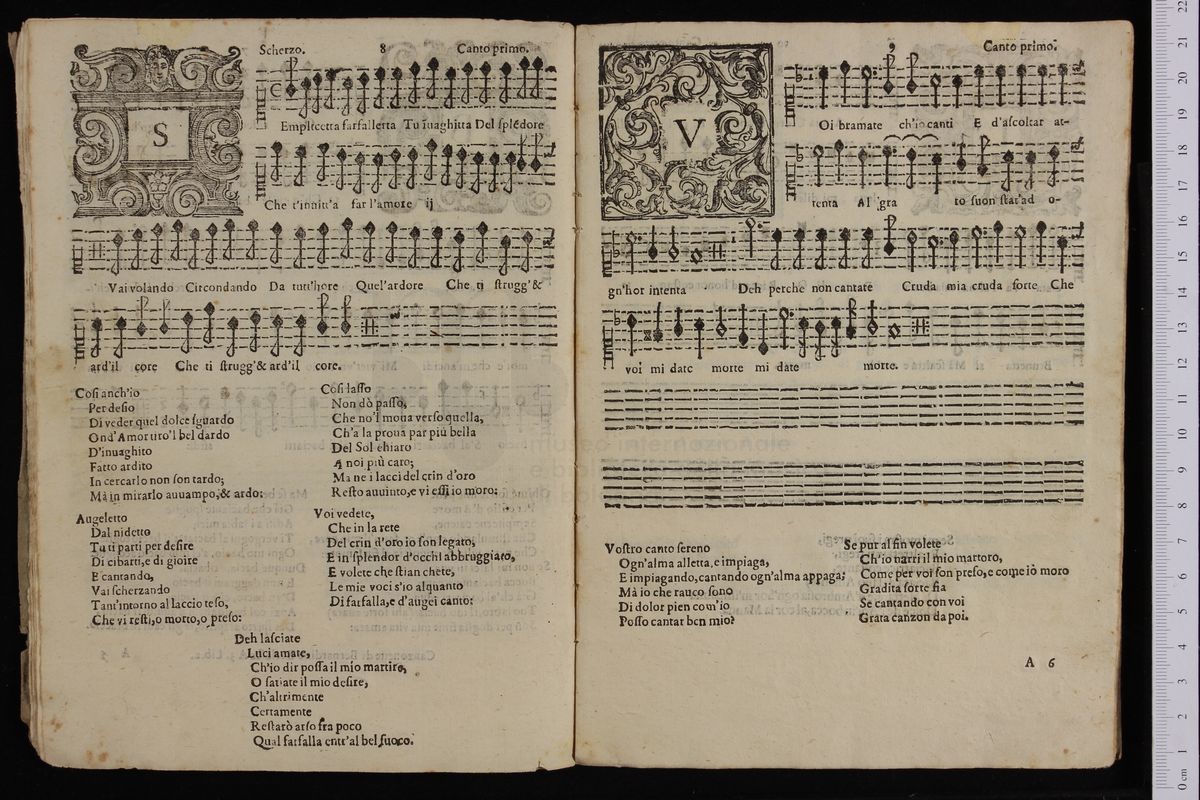 Scherzo. 8 Canto primo.
S
Emplicetta farfalletta Tu īuaghitta Del splēdore
Che t'inuit'a far l'amore ij
Vai volando Circondando Da tutt'hore Quel'ardore Che ti strugg'&
ard'il core Che ti strugg'& ard'il core.
Cosi anch'io
Per desio
Di veder quel dolce sguardo
Ond'Amor tiro'l bel dardo
D'inuaghito
Fatto ardito
In cercarlo non son tardo;
Mà in mirarlo auuampo,& ardo:
Cosi lasso
Non dò passo,
Che no'l moua verso quella,
Ch'a la proua par più bella
Del Sol chiaro
A noi più caro;
Ma ne i lacci del crin d'oro
Resto auuinto,e vi essi io moro:
Augeletto
Dal nidetto
Tu ti parti per desire
Di cibarti,e di gioire
E cantando,
Vai scherzando
Tant'intorno al laccio teso,
Che vi resti,o morto,o preso:
Voi vedete,
Che in la rete
Del crin d'oro io son legato,
E in splendor d'occhi abbruggiato,
E volete che stian chete,
Le mie voci s'io alquanto
Di farfalla,e d'augei canto:
Deh lasciate
Luci amate,
Ch'io dir possa il mio martiro,
O satiate il mio desire,
Ch'altrimente
Certamente
Restarò arso fra poco
Qual farfalla entr'al bel fuoco.
9 Canto primo.
V
Oi bramate ch'io canti E d'ascoltar at-
tenta Al gra to suon stat'ad o-
gn'hor intenta Deh perche non cantate Cruda mia cruda sorte Che
voi mi date morte mi date morte.
Vostro canto sereno
Ogn'alma alletta,e impiaga,
E impiagando,cantando ogn'alma appaga;
Mà io che rauco sono
Di dolor pien com'io
Posso cantar ben mio?
Se pur al fin volete
Ch'io narri il mio martoro,
Come per voi son preso,e come iò moro
Gradita sorte fia
Se cantando con voi
Grata canzon da poi.
A 6